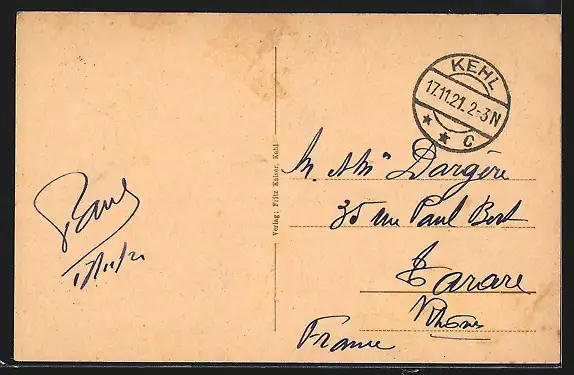 KEHL
17.11.21. 2-3N
* * C
Verlag: Fritz Kaiser, Kehl
M. & Me Dargère
35 rue Paul Bert
Tarare
Rhône
France
Paul
17/11/21